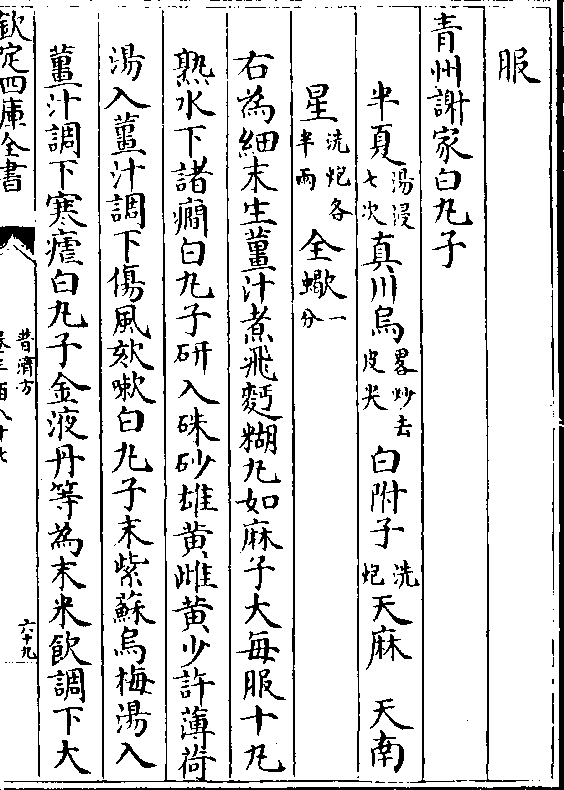 服
青州謝家白丸子
半夏湯浸七次真川烏畧炒去皮尖白附子洗炮天麻 天南
星洗炮各半兩全蠍一分
右為細末生薑汁煮飛麫糊丸如麻子大每服十丸
熟水下諸癇白丸子研入硃砂雄黄雌黄少許薄荷
湯入薑汁調下傷風欬嗽白丸子末紫蘇烏梅湯入
薑汁調下寒瘧白丸子金液丹等為末米飲調下大
欽定四庫全書
普濟方
六十九